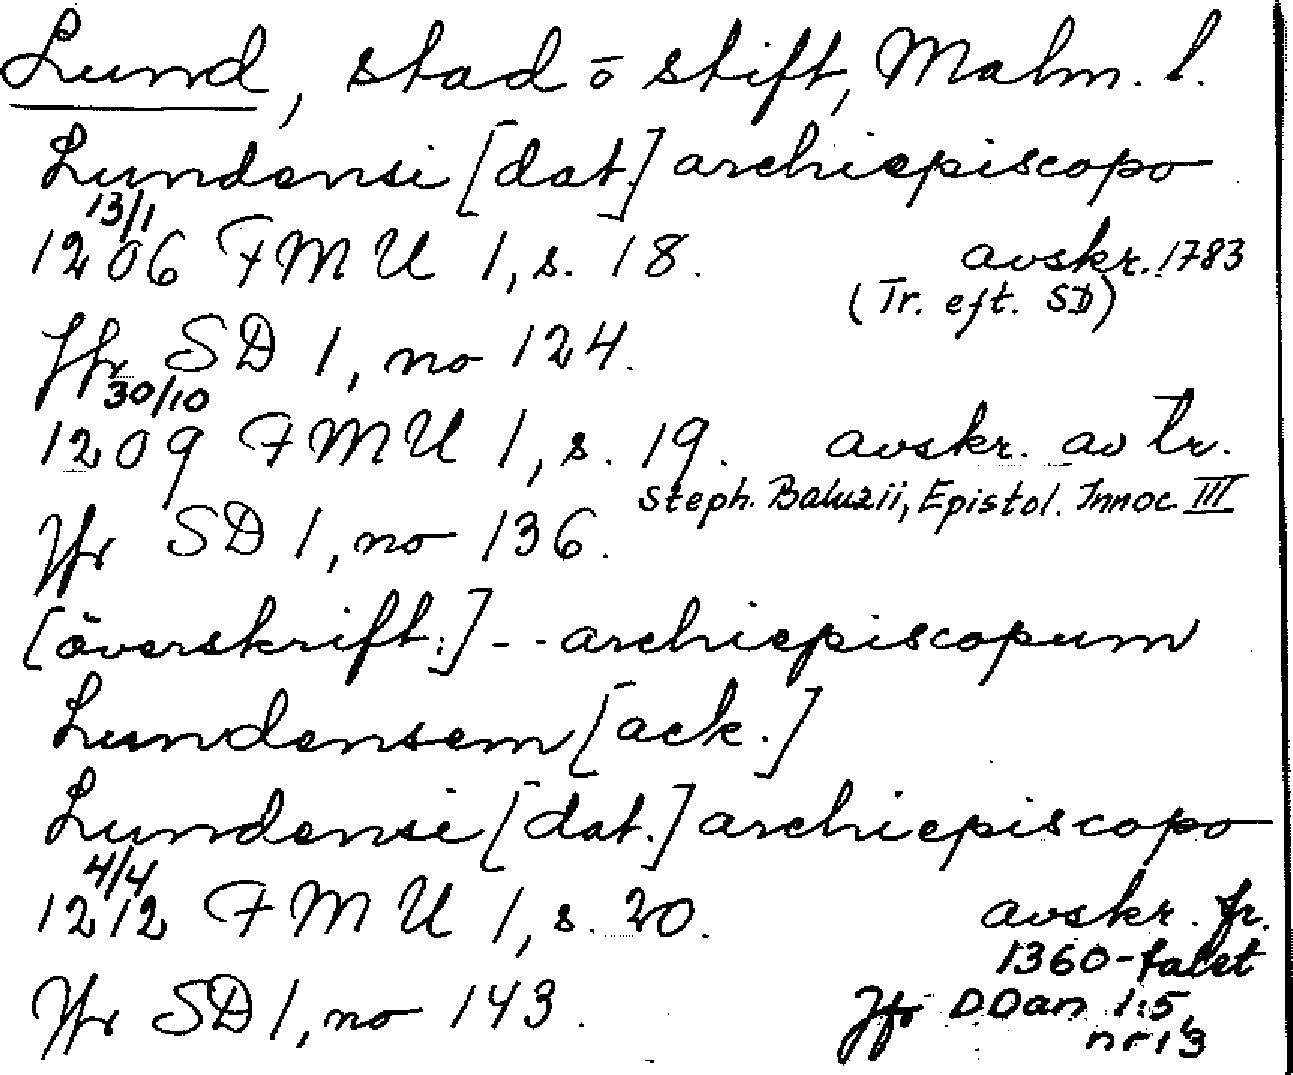 Lund, stad o stift, Malm. l.
Lundensi [dat.] archiepiscopo
13/1
1206 FMU 1, s. 18. avskr. 1783
(Tr. eft. SD)
Jfr SD 1, no 124.
30/10
1209 FMU 1, s. 19. avskr. av tr.
Steph. Baluzii, Epistol. Innoc. III
Jfr SD 1, no 136.
[överskrift:] - - archiepiscopum
Lundensem [ack.]
Lundensi [dat.] archiepiscopo
4/4
1212 FMU 1, s. 20. avskr. fr.
1360-talet
Jfr SD 1, no 143. Jfr DDan 1:5,
nr 13